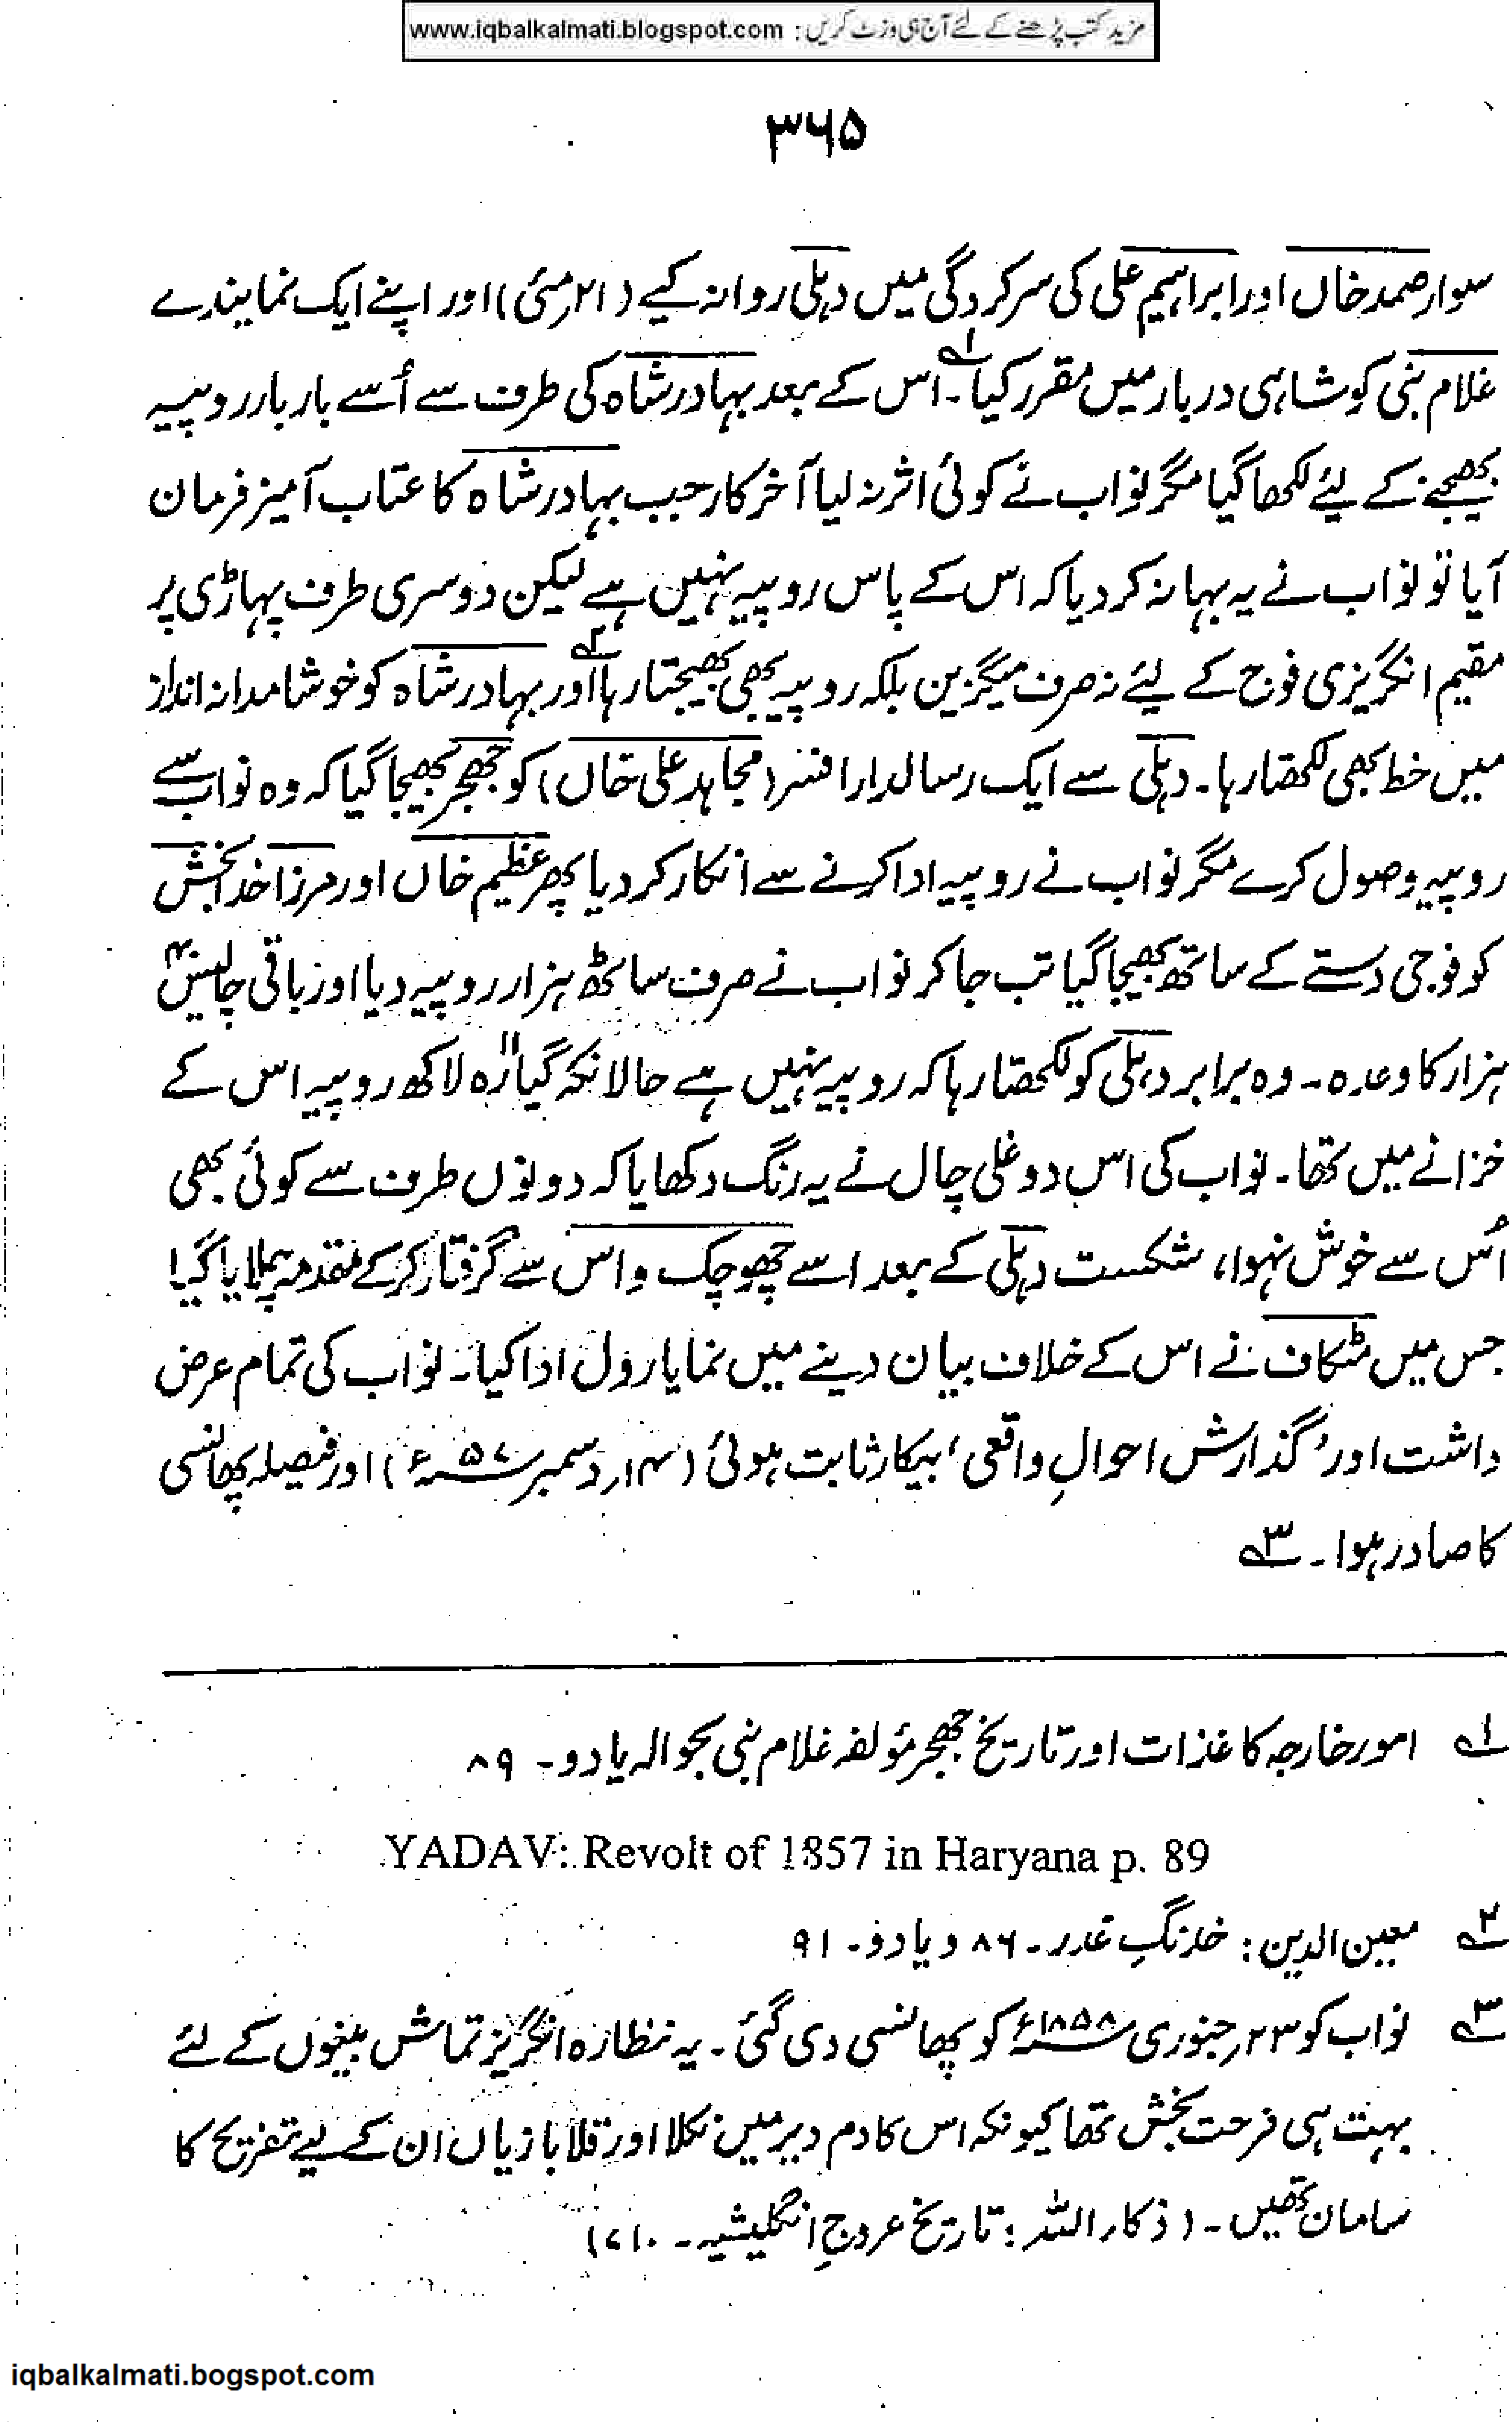 مزید کتب پڑھنے کے لئے آج ہی وزٹ کریں : www.iqbalkalmati.blogspot.com
۳۶۵
سوار صمد خاں اور ابراہیم علی کی سرکردگی میں دہلی روانہ کیے (۲۱ مئی) اور اپنے ایک نمایندے
غلام نبی کو شاہی دربار میں مقرر کیا۔ ۱؎ اس کے بعد بہادر شاہ کی طرف سے اُسے بار بار روپیہ
بھیجنے کے لئے لکھا گیا مگر نواب نے کوئی اثر نہ لیا آخر کار جب بہادر شاہ کا عتاب آمیز فرمان
آیا تو نواب نے یہ بہانہ کر دیا کہ اس کے پاس روپیہ نہیں ہے لیکن دوسری طرف پہاڑی پر
مقیم انگریزی فوج کے لیٔے نہ صرف میگزین بلکہ روپیہ بھی بھیجتا رہا ۲؎ اور بہادر شاہ کو خوشامدانہ انداز
میں خط بھی لکھتا رہا۔ دہلی سے ایک رسالدار افسر (مجاہد علی خاں) کو جھجر بھیجا گیا کہ وہ نواب سے
روپیہ وصول کرے مگر نواب نے روپیہ ادا کرنے سے انکار کر دیا پھر عظیم خاں اور مرزا خدا بخش
کو فوجی دستے کے ساتھ بھیجا گیا تب جا کر نواب نے صرف ساٹھ ہزار روپیہ دیا اور باقی چالیس
ہزار کا وعدہ۔ وہ برابر دہلی کو لکھتا رہا کہ روپیہ نہیں ہے حالانکہ گیارہ لاکھ روپیہ اس کے
خزانے میں تھا۔ نواب کی اس دوغلی چال نے یہ رنگ دکھایا کہ دونوں طرف سے کوئی بھی
اُس سے خوش نہوا، شکست دہلی کے بعد اسے چھوچک واس سے گرفتار کر کے مقدمہ چلایا گیا
جس میں مٹکاف نے اس کے خلاف بیان دینے میں نمایا رول ادا کیا۔ نواب کی تمام عرض
داشت اور 'گذارش احوالِ واقعی' بیکار ثابت ہوئی (۱۴ دسمبر ۵۷ء) اور فیصلہ پھانسی
کا صادر ہوا۔ ۳؎
۱؎ امور خارجہ کاغذات اور تاریخ جھجر مؤلفہ غلام نبی بحوالہ یادو۔ ۸۹
YADAV: Revolt of 1857 in Haryana p. 89
۲؎ معین الدین: خدنگِ غدر۔ ۸۶ و یادو۔ ۹۱
۳؎ نواب کو ۲۳ جنوری ۱۸۵۸ء کو پھانسی دی گئی۔ یہ نظارہ انگریز تماش بینوں کے لئے
بہت ہی فرحت بخش تھا کیونکہ اس کا دم دیر میں نکلا اور قلابازیاں ان کے لیے تفریح کا
سامان تھیں۔ (ذکاء اللہ: تاریخ عروجِ انگلیشیہ۔ ۷۱۰)
iqbalkalmati.bogspot.com